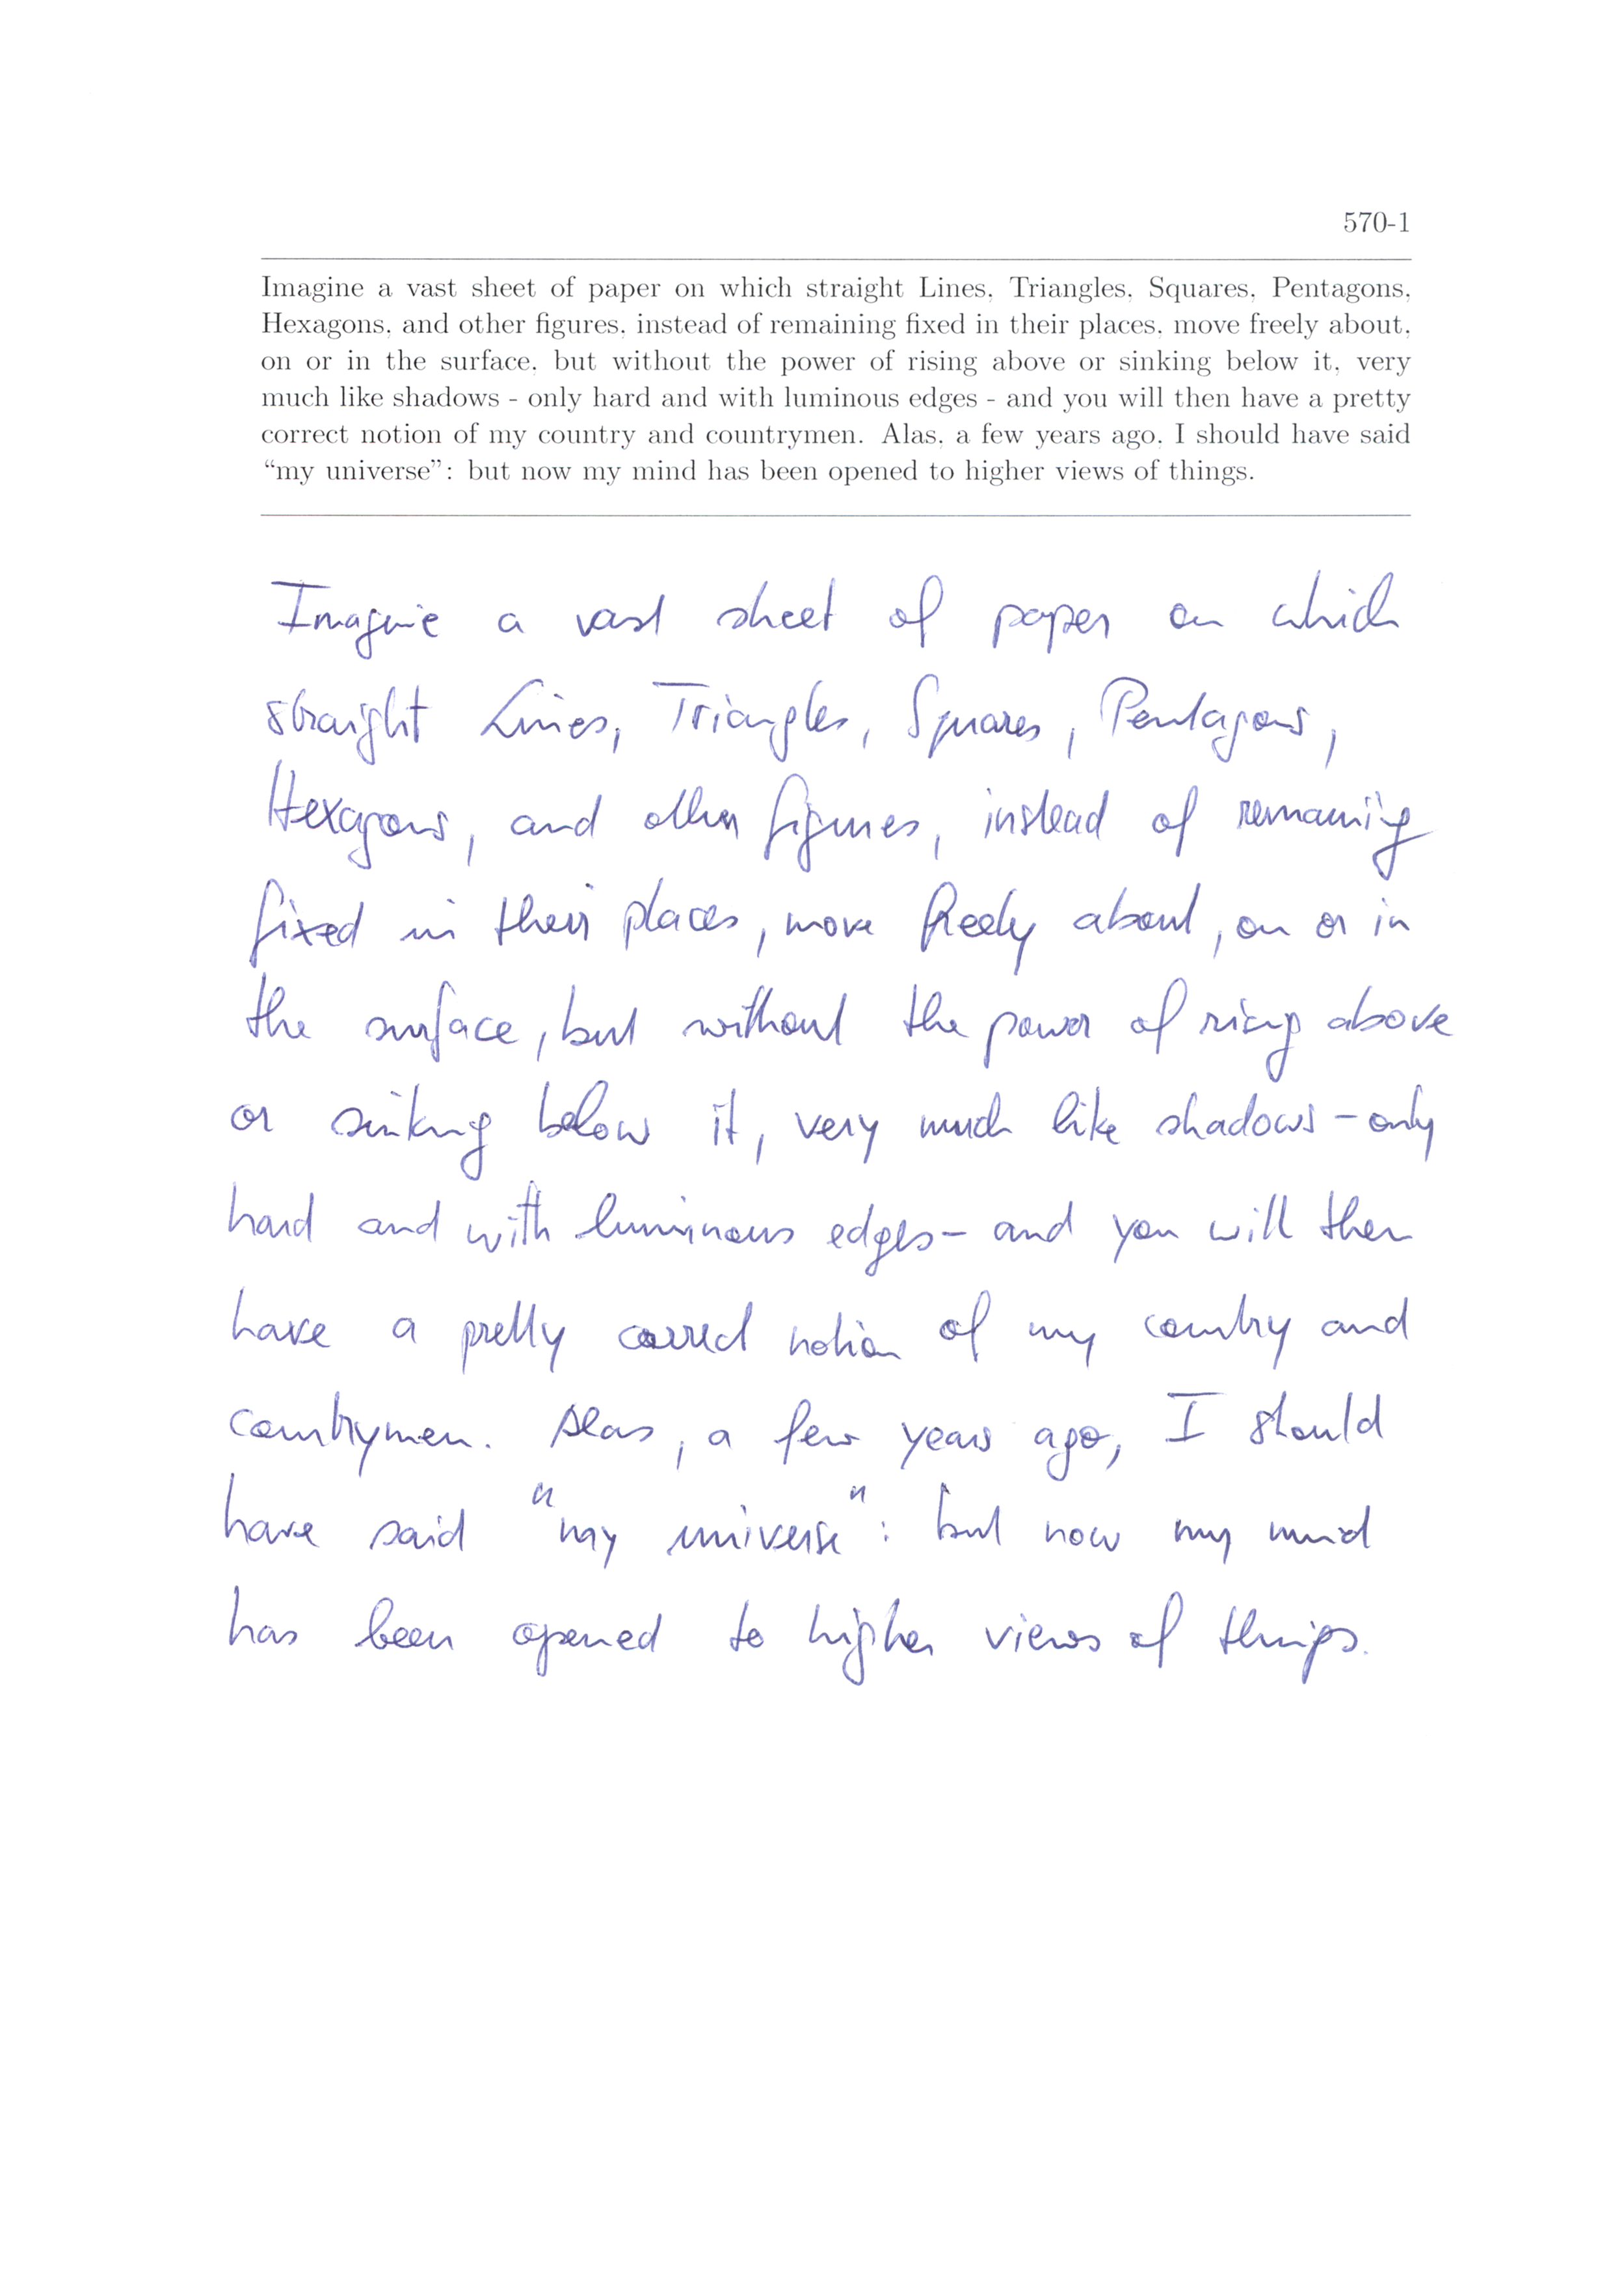 570-1
Imagine a vast sheet of paper on which straight Lines, Triangles, Squares, Pentagons,
Hexagons, and other figures, instead of remaining fixed in their places, move freely about,
on or in the surface, but without the power of rising above or sinking below it, very
much like shadows - only hard and with luminous edges - and you will then have a pretty
correct notion of my country and countrymen. Alas, a few years ago, I should have said
“my universe”: but now my mind has been opened to higher views of things.
Imagine a vast sheet of paper on which
straight Lines, Triangles, Squares, Pentagons,
Hexagons, and other figures, instead of remaining
fixed in their places, move freely about, on or in
the surface, but without the power of rising above
or sinking below it, very much like shadows - only
hard and with luminous edges - and you will then
have a pretty correct notion of my country and
countrymen. Alas, a few years ago, I should
have said "my universe": but now my mind
has been opened to higher views of things.